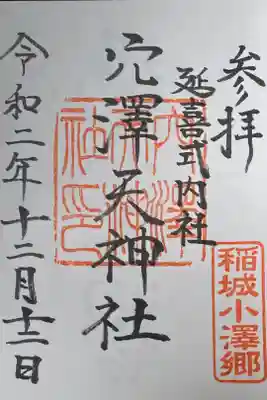 参拝
延喜式内社
穴澤天神社
令和二年十二月十二日
稲城小澤郷
穴澤
天神
社印